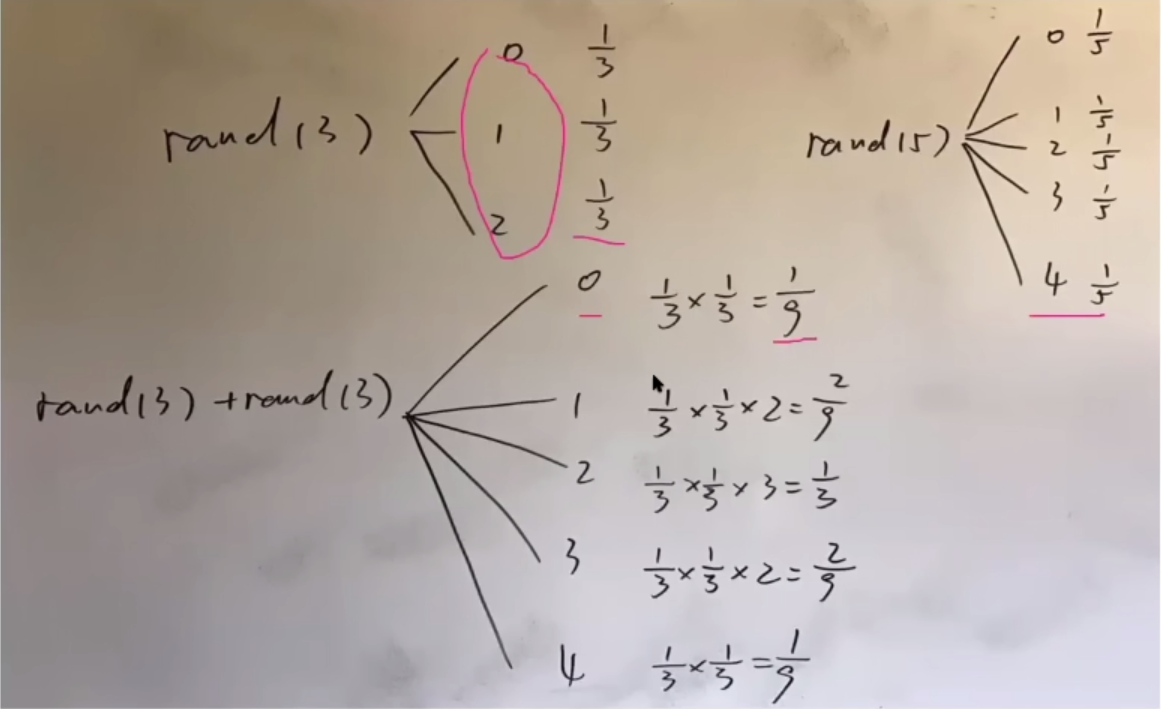 rand(3)
0 1/3
1 1/3
2 1/3
rand(5)
0 1/5
1 1/5
2 1/5
3 1/5
4 1/5
rand(3) + rand(3)
0 1/3 × 1/3 = 1/9
1 1/3 × 1/3 × 2 = 2/9
2 1/3 × 1/3 × 3 = 1/3
3 1/3 × 1/3 × 2 = 2/9
4 1/3 × 1/3 = 1/9